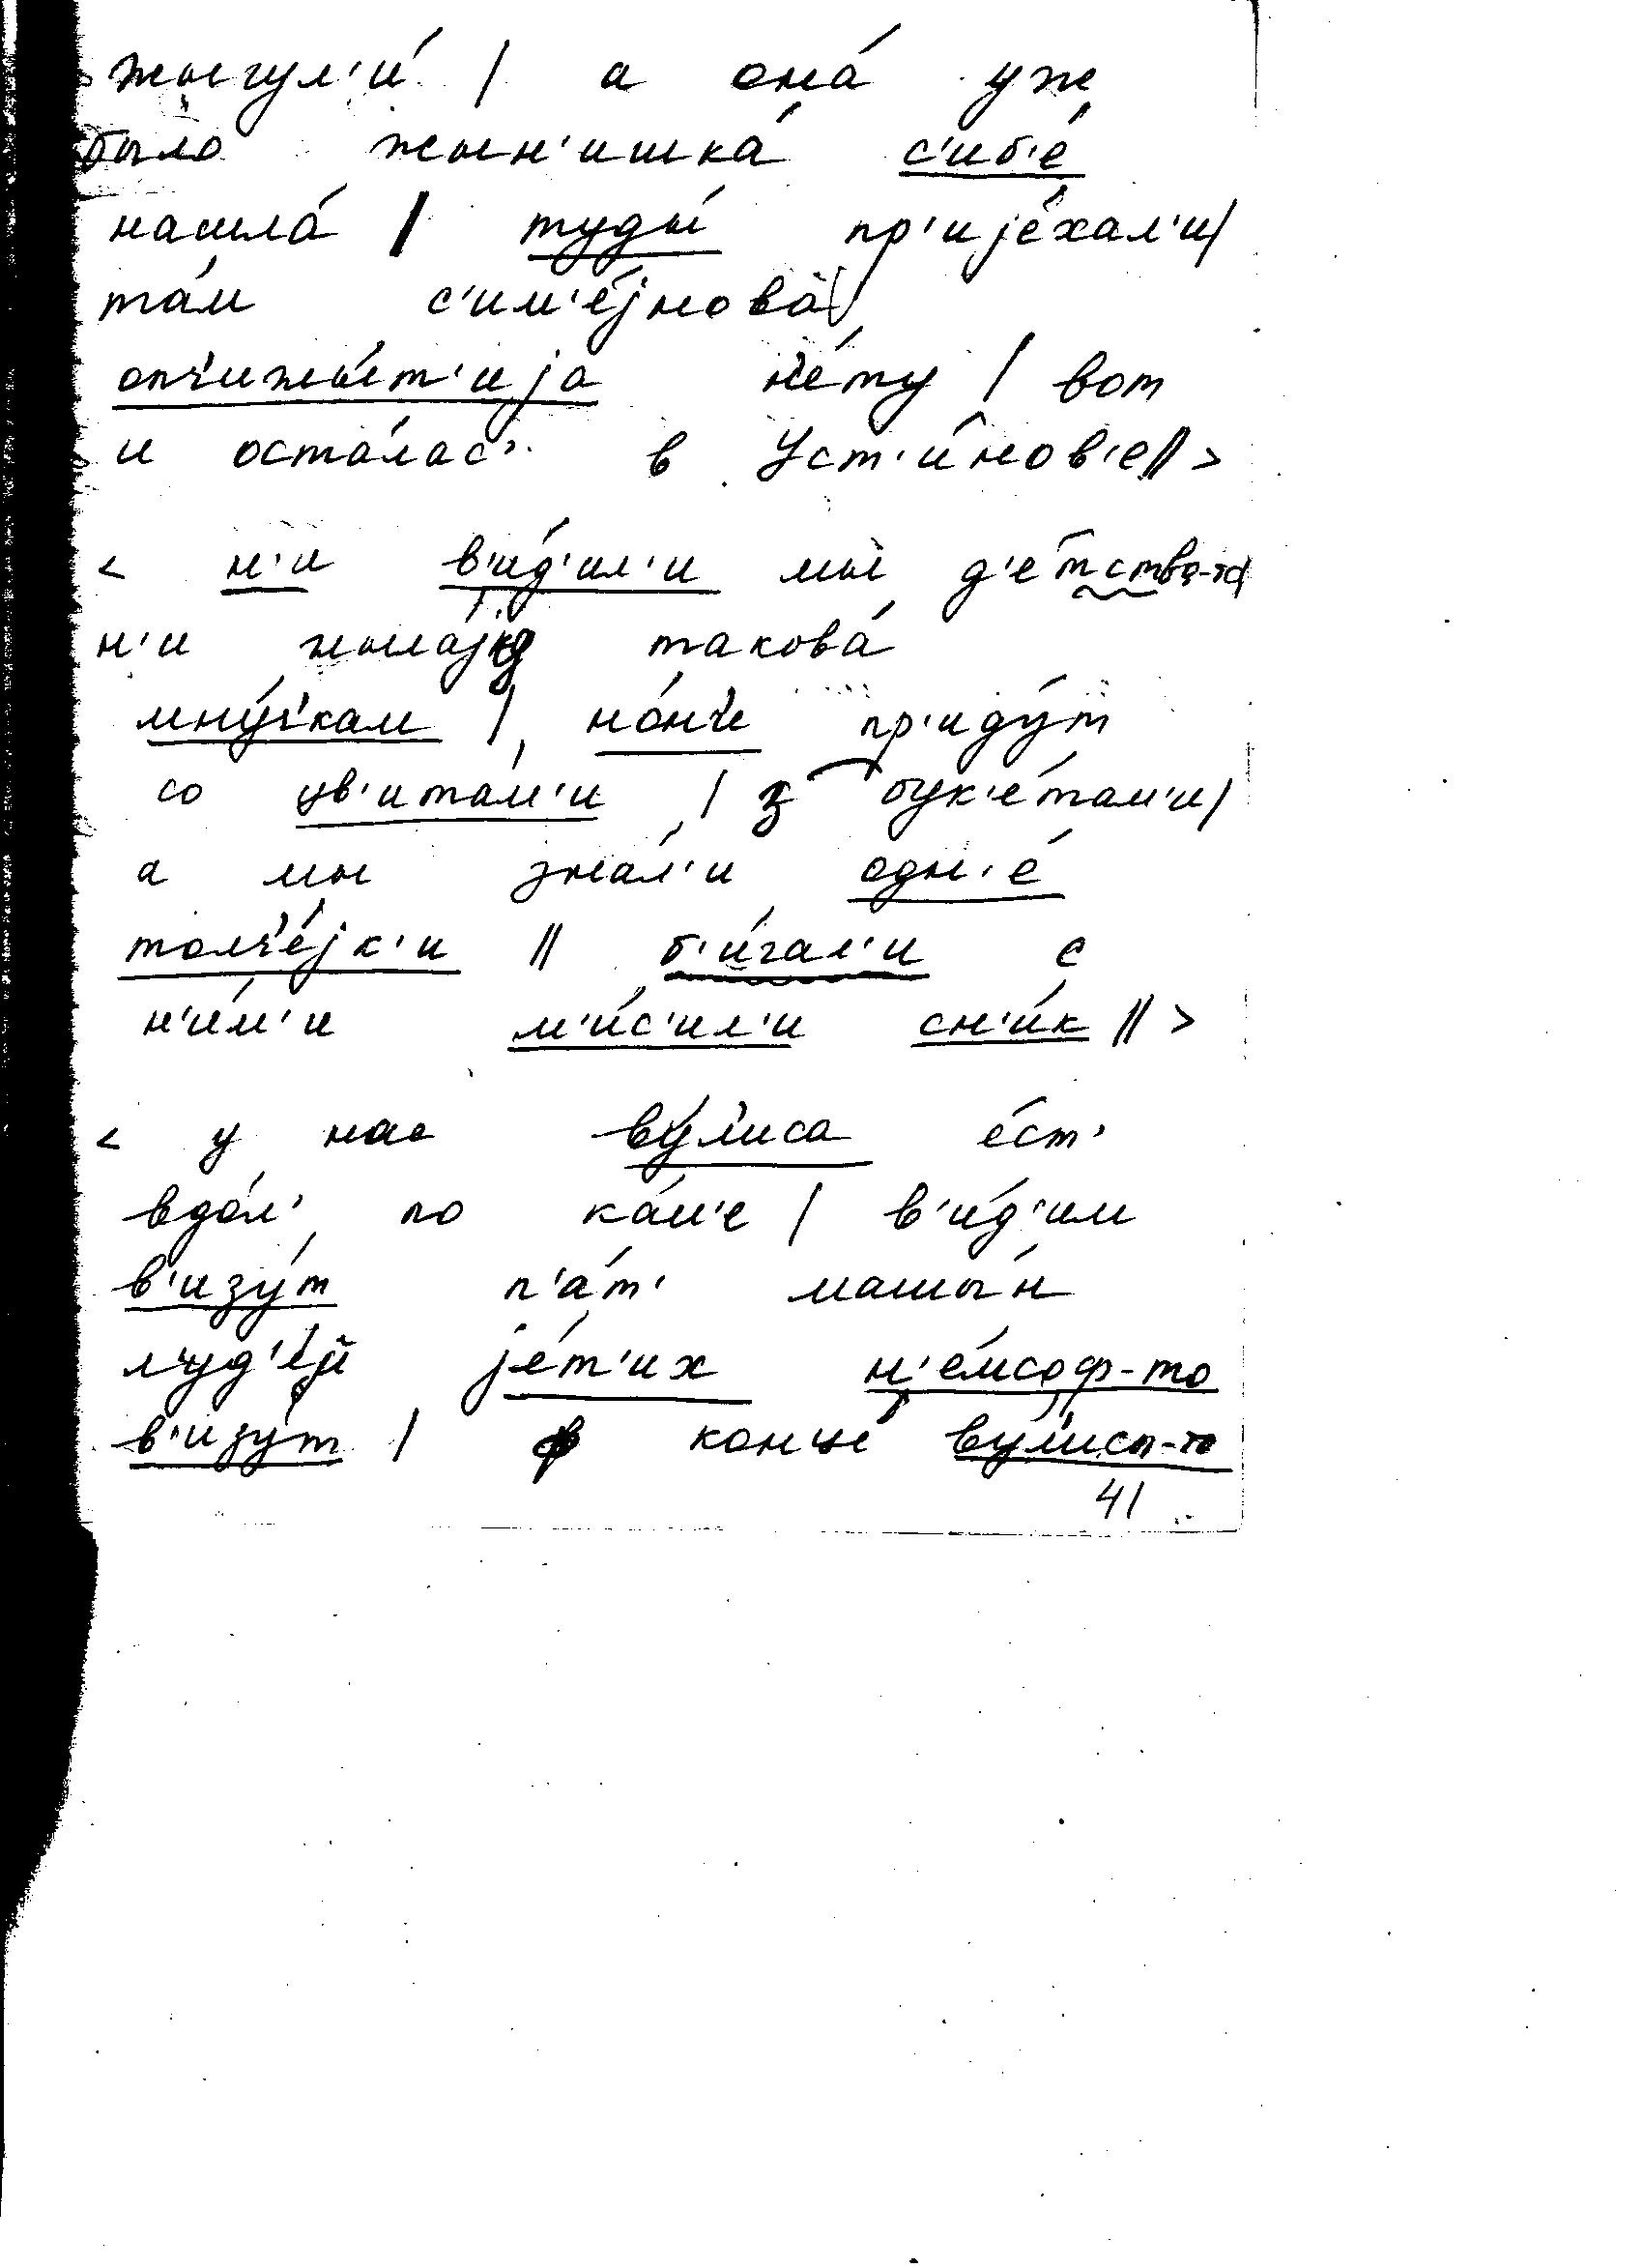 жыгул'и́ | а она́ уж
было жын'ишка́ с'иб'е́
нашла́ | туды́ пр'ијéхал'и|
та́м с'им'е́јнова|
опч'ижы́т'ија н'е́ту | вот
и оста́лас' в Уст'и́нов'е|| >
< н'и в'и́д'ил'и мы д'е́тства-та
н'и жыла́јⱪ такова́
мну́ч'кам | но́нч'и пр'иду́т
со цв'ита́м'и | з бук'е́там'и|
а мы зна́л'и одн'е́
толч'е́јк'и || б'и́гал'и с
н'и́м'и м'и́с'ил'и сн'и́к || >
< у нас ву́л'иса е́ст'
вдо́л' по ка́м'е | в'и́д'им
в'изу́т п'а́т' машы́н
л'уд'е́й је́т'их н'е́мсоф-то
в'изу́т | ф конце́ ву́л'исы-то
41